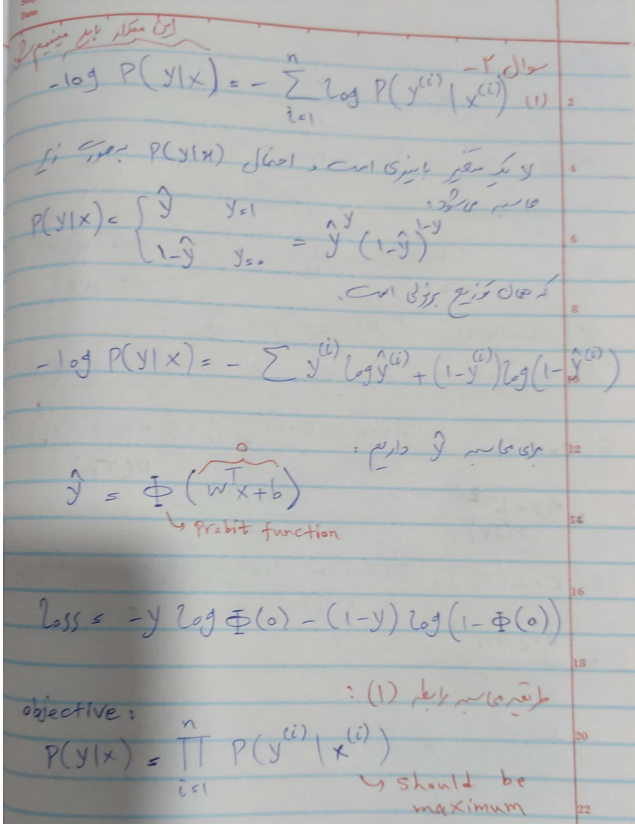 این مقدار باید مینیمم شود
سوال ۲-
-log P(y|x) = - Σ_{i=1}^{n} log P(y^{(i)} | x^{(i)}) (1)
y یک متغیر باینری است و احتمال P(y|x) به صورت زیر
محاسبه می‌شود:
P(y|x) = { ŷ y=1
1-ŷ y=0 = ŷ^y (1-ŷ)^{1-y}
که همان توزیع برنولی است.
-log P(y|x) = - Σ y^{(i)} log ŷ^{(i)} + (1-y^{(i)}) log(1-ŷ^{(i)})
برای محاسبه ŷ داریم:
o
ŷ = Φ (w^T x+b)
↳ Probit function
Loss = -y log Φ(o) - (1-y) log(1-Φ(o))
طریقه محاسبه رابطه (1):
objective:
P(y|x) = Π_{i=1}^{n} P(y^{(i)} | x^{(i)})
↳ should be
maximum
2
4
6
8
10
12
14
16
18
20
22